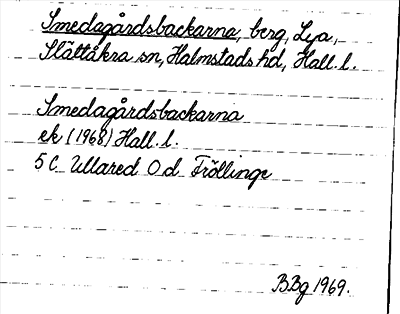 Smedagårdsbackarna, berg, Lya,
Slättåkra sn, Halmstads hd, Hall. l.
Smedagårdsbackarna
ek (1968) Hall. l.
5 C Ullared O d Fröllinge
B.Bg 1969.